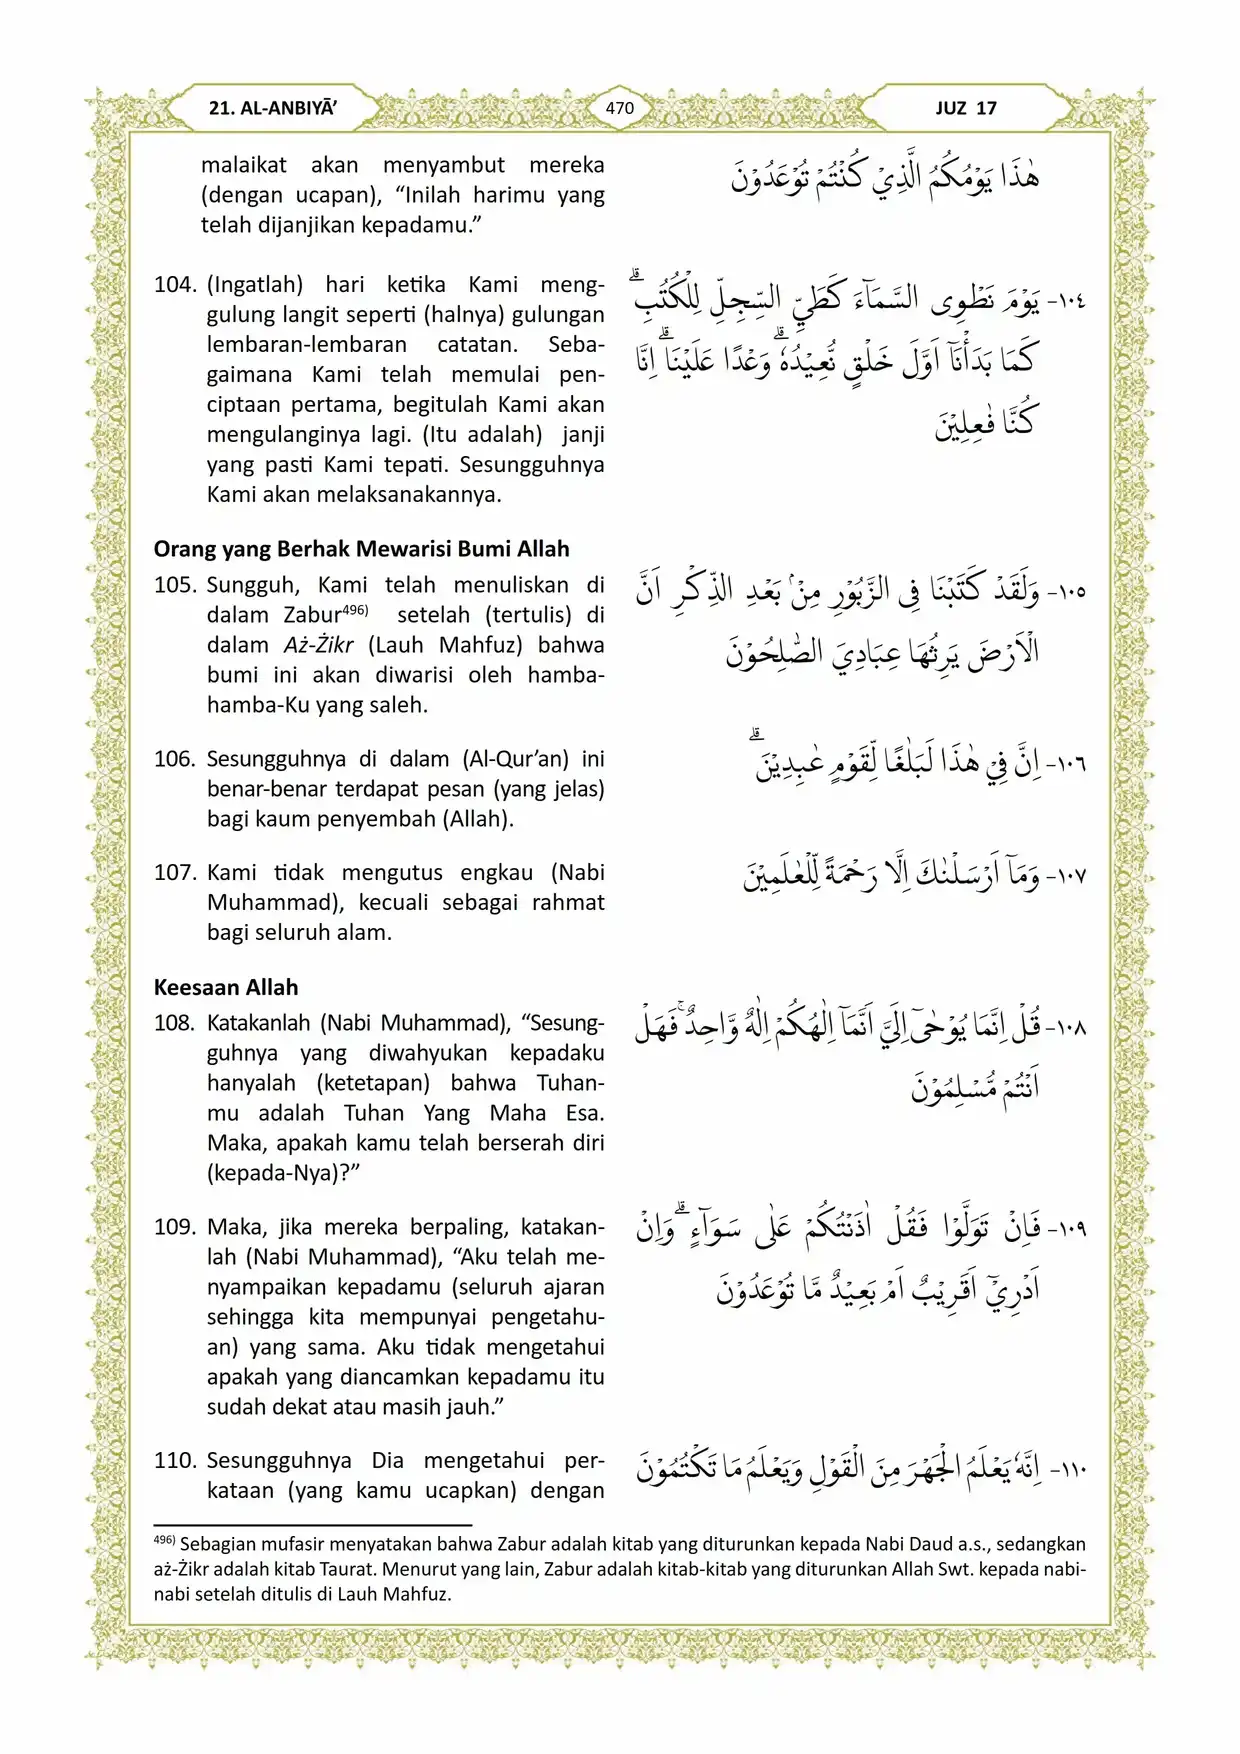 21. AL-ANBIYĀ’
470
JUZ 17
malaikat akan menyambut mereka
(dengan ucapan), “Inilah harimu yang
telah dijanjikan kepadamu.”
هٰذَا يَوْمُكُمُ الَّذِيْ كُنْتُمْ تُوْعَدُوْنَ
104. (Ingatlah) hari ketika Kami meng-
gulung langit seperti (halnya) gulungan
lembaran-lembaran catatan. Seba-
gaimana Kami telah memulai pen-
ciptaan pertama, begitulah Kami akan
mengulanginya lagi. (Itu adalah) janji
yang pasti Kami tepati. Sesungguhnya
Kami akan melaksanakannya.
١٠٤- يَوْمَ نَطْوِى السَّمَاۤءَ كَطَيِّ السِّجِلِّ لِلْكُتُبِۗ
كَمَا بَدَأْنَآ اَوَّلَ خَلْقٍ نُّعِيْدُهٗۗ وَعْدًا عَلَيْنَاۗ اِنَّا
كُنَّا فٰعِلِيْنَ
Orang yang Berhak Mewarisi Bumi Allah
105. Sungguh, Kami telah menuliskan di
dalam Zabur496) setelah (tertulis) di
dalam Aż-Żikr (Lauh Mahfuz) bahwa
bumi ini akan diwarisi oleh hamba-
hamba-Ku yang saleh.
١٠٥- وَلَقَدْ كَتَبْنَا فِى الزَّبُوْرِ مِنْۢ بَعْدِ الذِّكْرِ اَنَّ
الْاَرْضَ يَرِثُهَا عِبَادِيَ الصّٰلِحُوْنَ
106. Sesungguhnya di dalam (Al-Qur’an) ini
benar-benar terdapat pesan (yang jelas)
bagi kaum penyembah (Allah).
١٠٦- اِنَّ فِيْ هٰذَا لَبَلٰغًا لِّقَوْمٍ عٰبِدِيْنَۗ
107. Kami tidak mengutus engkau (Nabi
Muhammad), kecuali sebagai rahmat
bagi seluruh alam.
١٠٧- وَمَآ اَرْسَلْنٰكَ اِلَّا رَحْمَةً لِّلْعٰلَمِيْنَ
Keesaan Allah
108. Katakanlah (Nabi Muhammad), “Sesung-
guhnya yang diwahyukan kepadaku
hanyalah (ketetapan) bahwa Tuhan-
mu adalah Tuhan Yang Maha Esa.
Maka, apakah kamu telah berserah diri
(kepada-Nya)?”
١٠٨- قُلْ اِنَّمَا يُوْحٰٓى اِلَيَّ اَنَّمَآ اِلٰهُكُمْ اِلٰهٌ وَّاحِدٌۚ فَهَلْ
اَنْتُمْ مُّسْلِمُوْنَ
109. Maka, jika mereka berpaling, katakan-
lah (Nabi Muhammad), “Aku telah me-
nyampaikan kepadamu (seluruh ajaran
sehingga kita mempunyai pengetahu-
an) yang sama. Aku tidak mengetahui
apakah yang diancamkan kepadamu itu
sudah dekat atau masih jauh.”
١٠٩- فَاِنْ تَوَلَّوْا فَقُلْ اٰذَنْتُكُمْ عَلٰى سَوَاۤءٍۗ وَاِنْ
اَدْرِيْٓ اَقَرِيْبٌ اَمْ بَعِيْدٌ مَّا تُوْعَدُوْنَ
110. Sesungguhnya Dia mengetahui per-
kataan (yang kamu ucapkan) dengan
١١٠- اِنَّهٗ يَعْلَمُ الْجَهْرَ مِنَ الْقَوْلِ وَيَعْلَمُ مَا تَكْتُمُوْنَ
496) Sebagian mufasir menyatakan bahwa Zabur adalah kitab yang diturunkan kepada Nabi Daud a.s., sedangkan
aż-Żikr adalah kitab Taurat. Menurut yang lain, Zabur adalah kitab-kitab yang diturunkan Allah Swt. kepada nabi-
nabi setelah ditulis di Lauh Mahfuz.